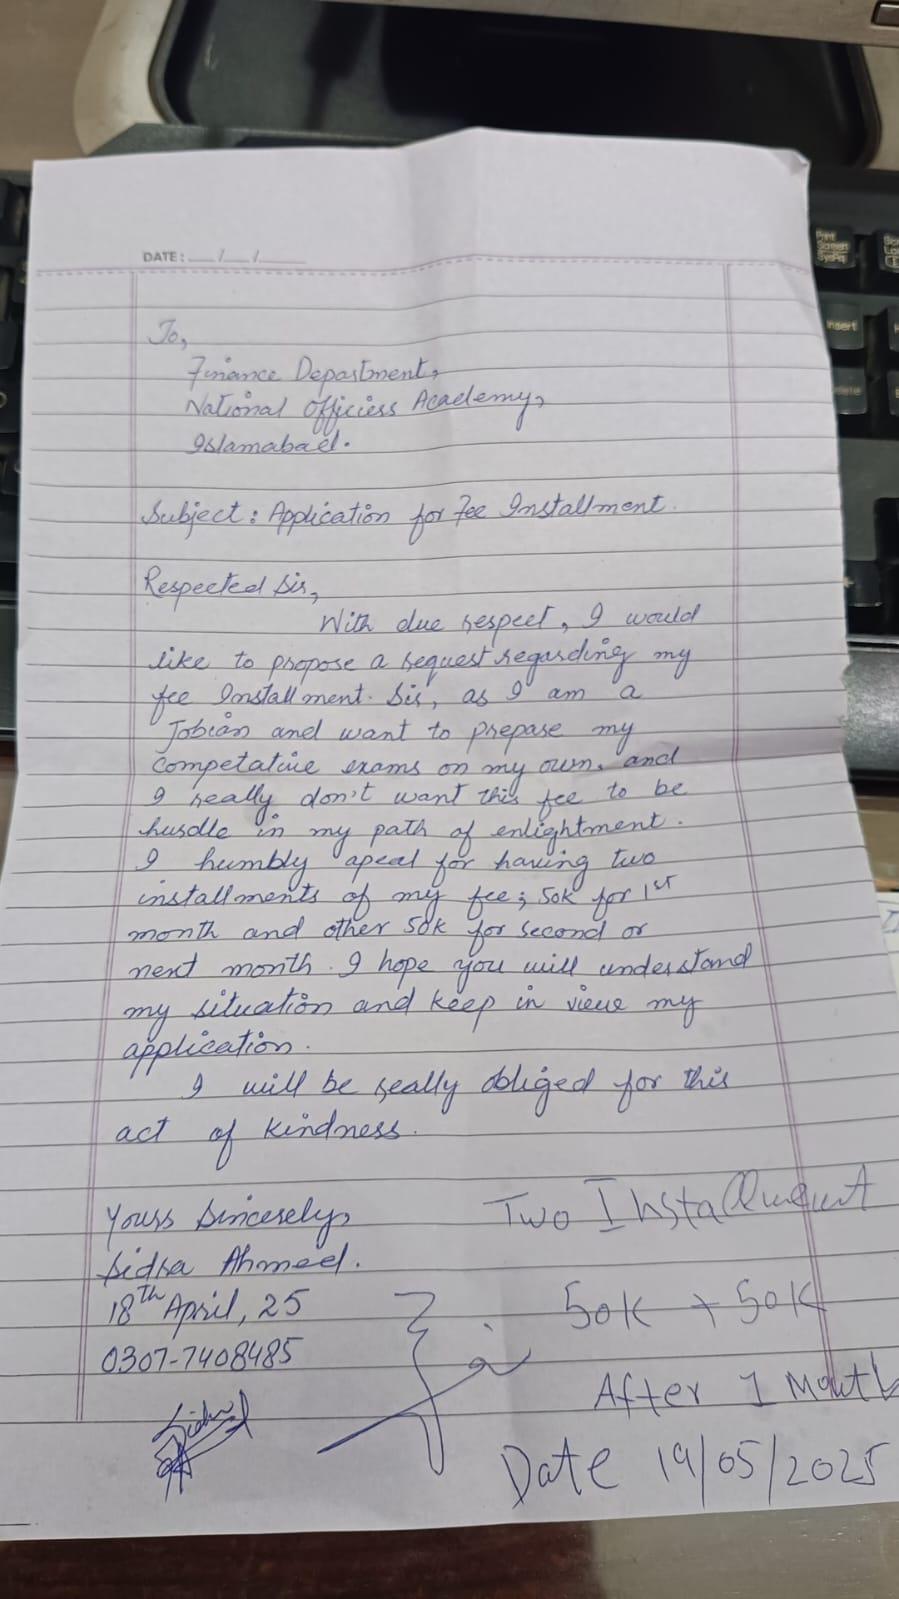 DATE: __/__/____
To,
Finance Department,
National Officiers Academy,
Islamabad.
Subject: Application for Fee Installment.
Respected Sir,
With due respect, I would
like to propose a request regarding my
fee Installment. Sir, as I am a
Jobian and want to prepare my
Competative exams on my own. and
I really don't want this fee to be
hurdle in my path of enlightment.
I humbly apeal for having two
installments of my fee; 50k for 1st
month and other 50k for second or
next month. I hope you will understand
my situation and keep in view my
application.
I will be really obliged for this
act of kindness.
Yours Sincerely,
Sidra Ahmed.
18th April, 25
0307-7408485
Sidra
Two Installment
50K + 50K
After 1 Month
Date 19/05/2025
Print
Screen
SysRq
Insert